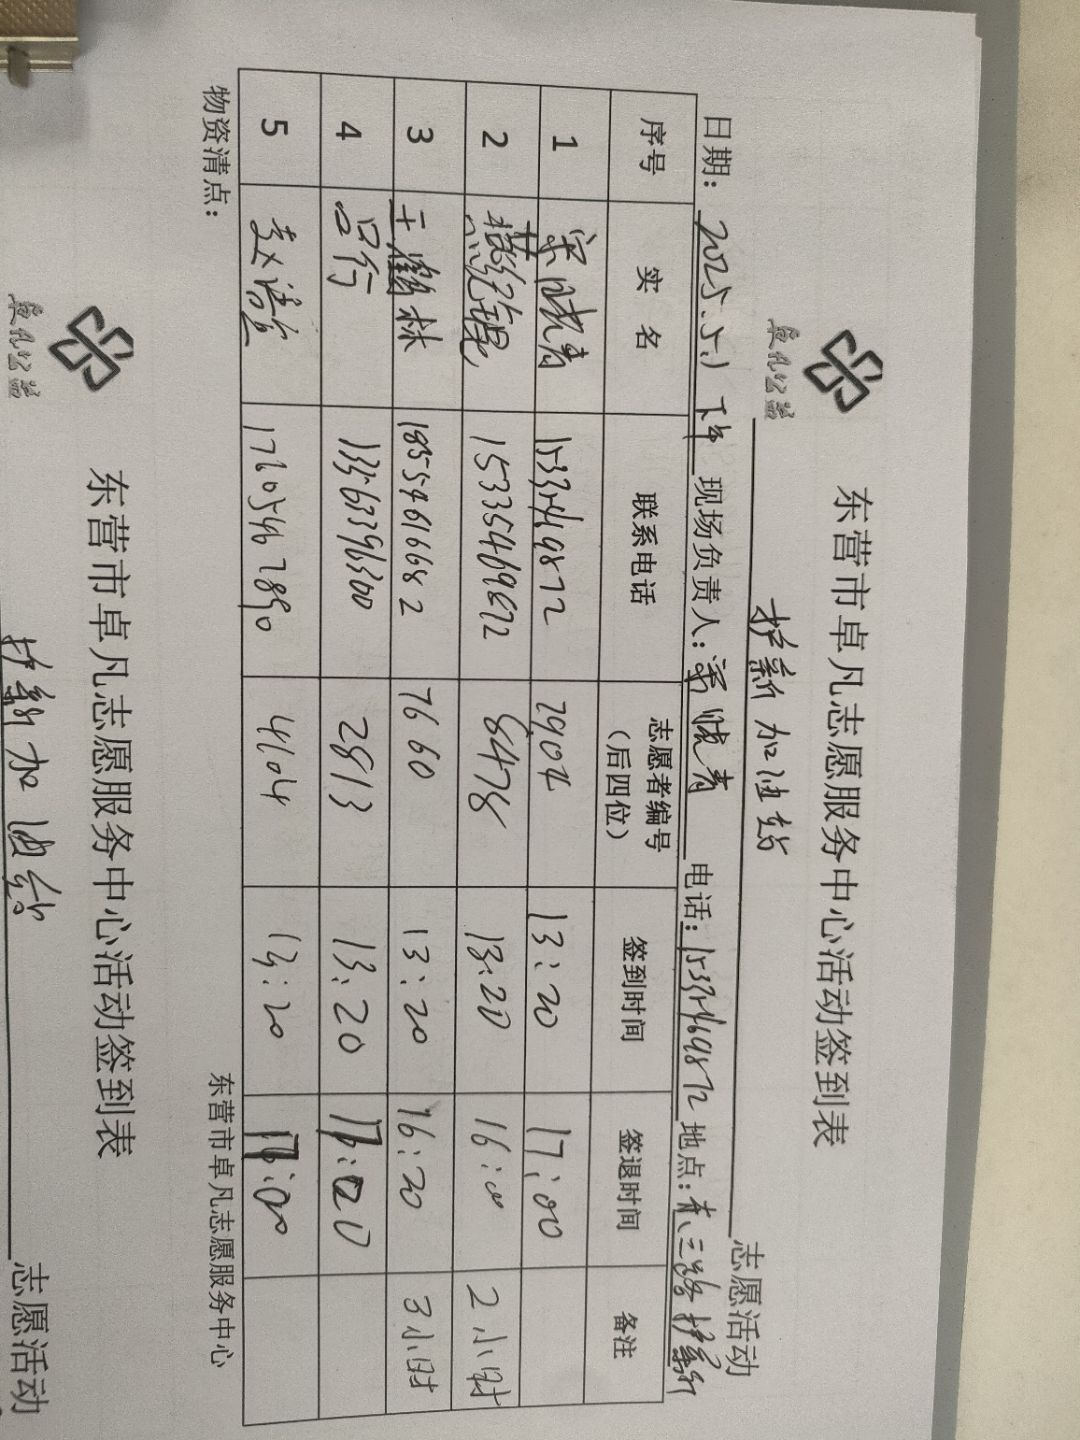 卓凡公益
东营市卓凡志愿服务中心活动签到表
护新加油站 志愿活动
日期: 2025.5.1 下午 现场负责人: 宋晓青 电话: 15335469872 地点: 东三路护新
序号 实 名 联系电话 志愿者编号(后四位) 签到时间 签退时间 备注
1 宋晓青 15335469872 7907 13:20 17:00
2 15335469672 8478 13:20 16:00 2小时
3 18554616682 7660 13:20 16:20 3小时
4 吕行 13563396300 2813 13:20
5 17605467890 4104 13:20
物资清点: 东营市卓凡志愿服务中心
卓凡公益
东营市卓凡志愿服务中心活动签到表
护新加油站 志愿活动